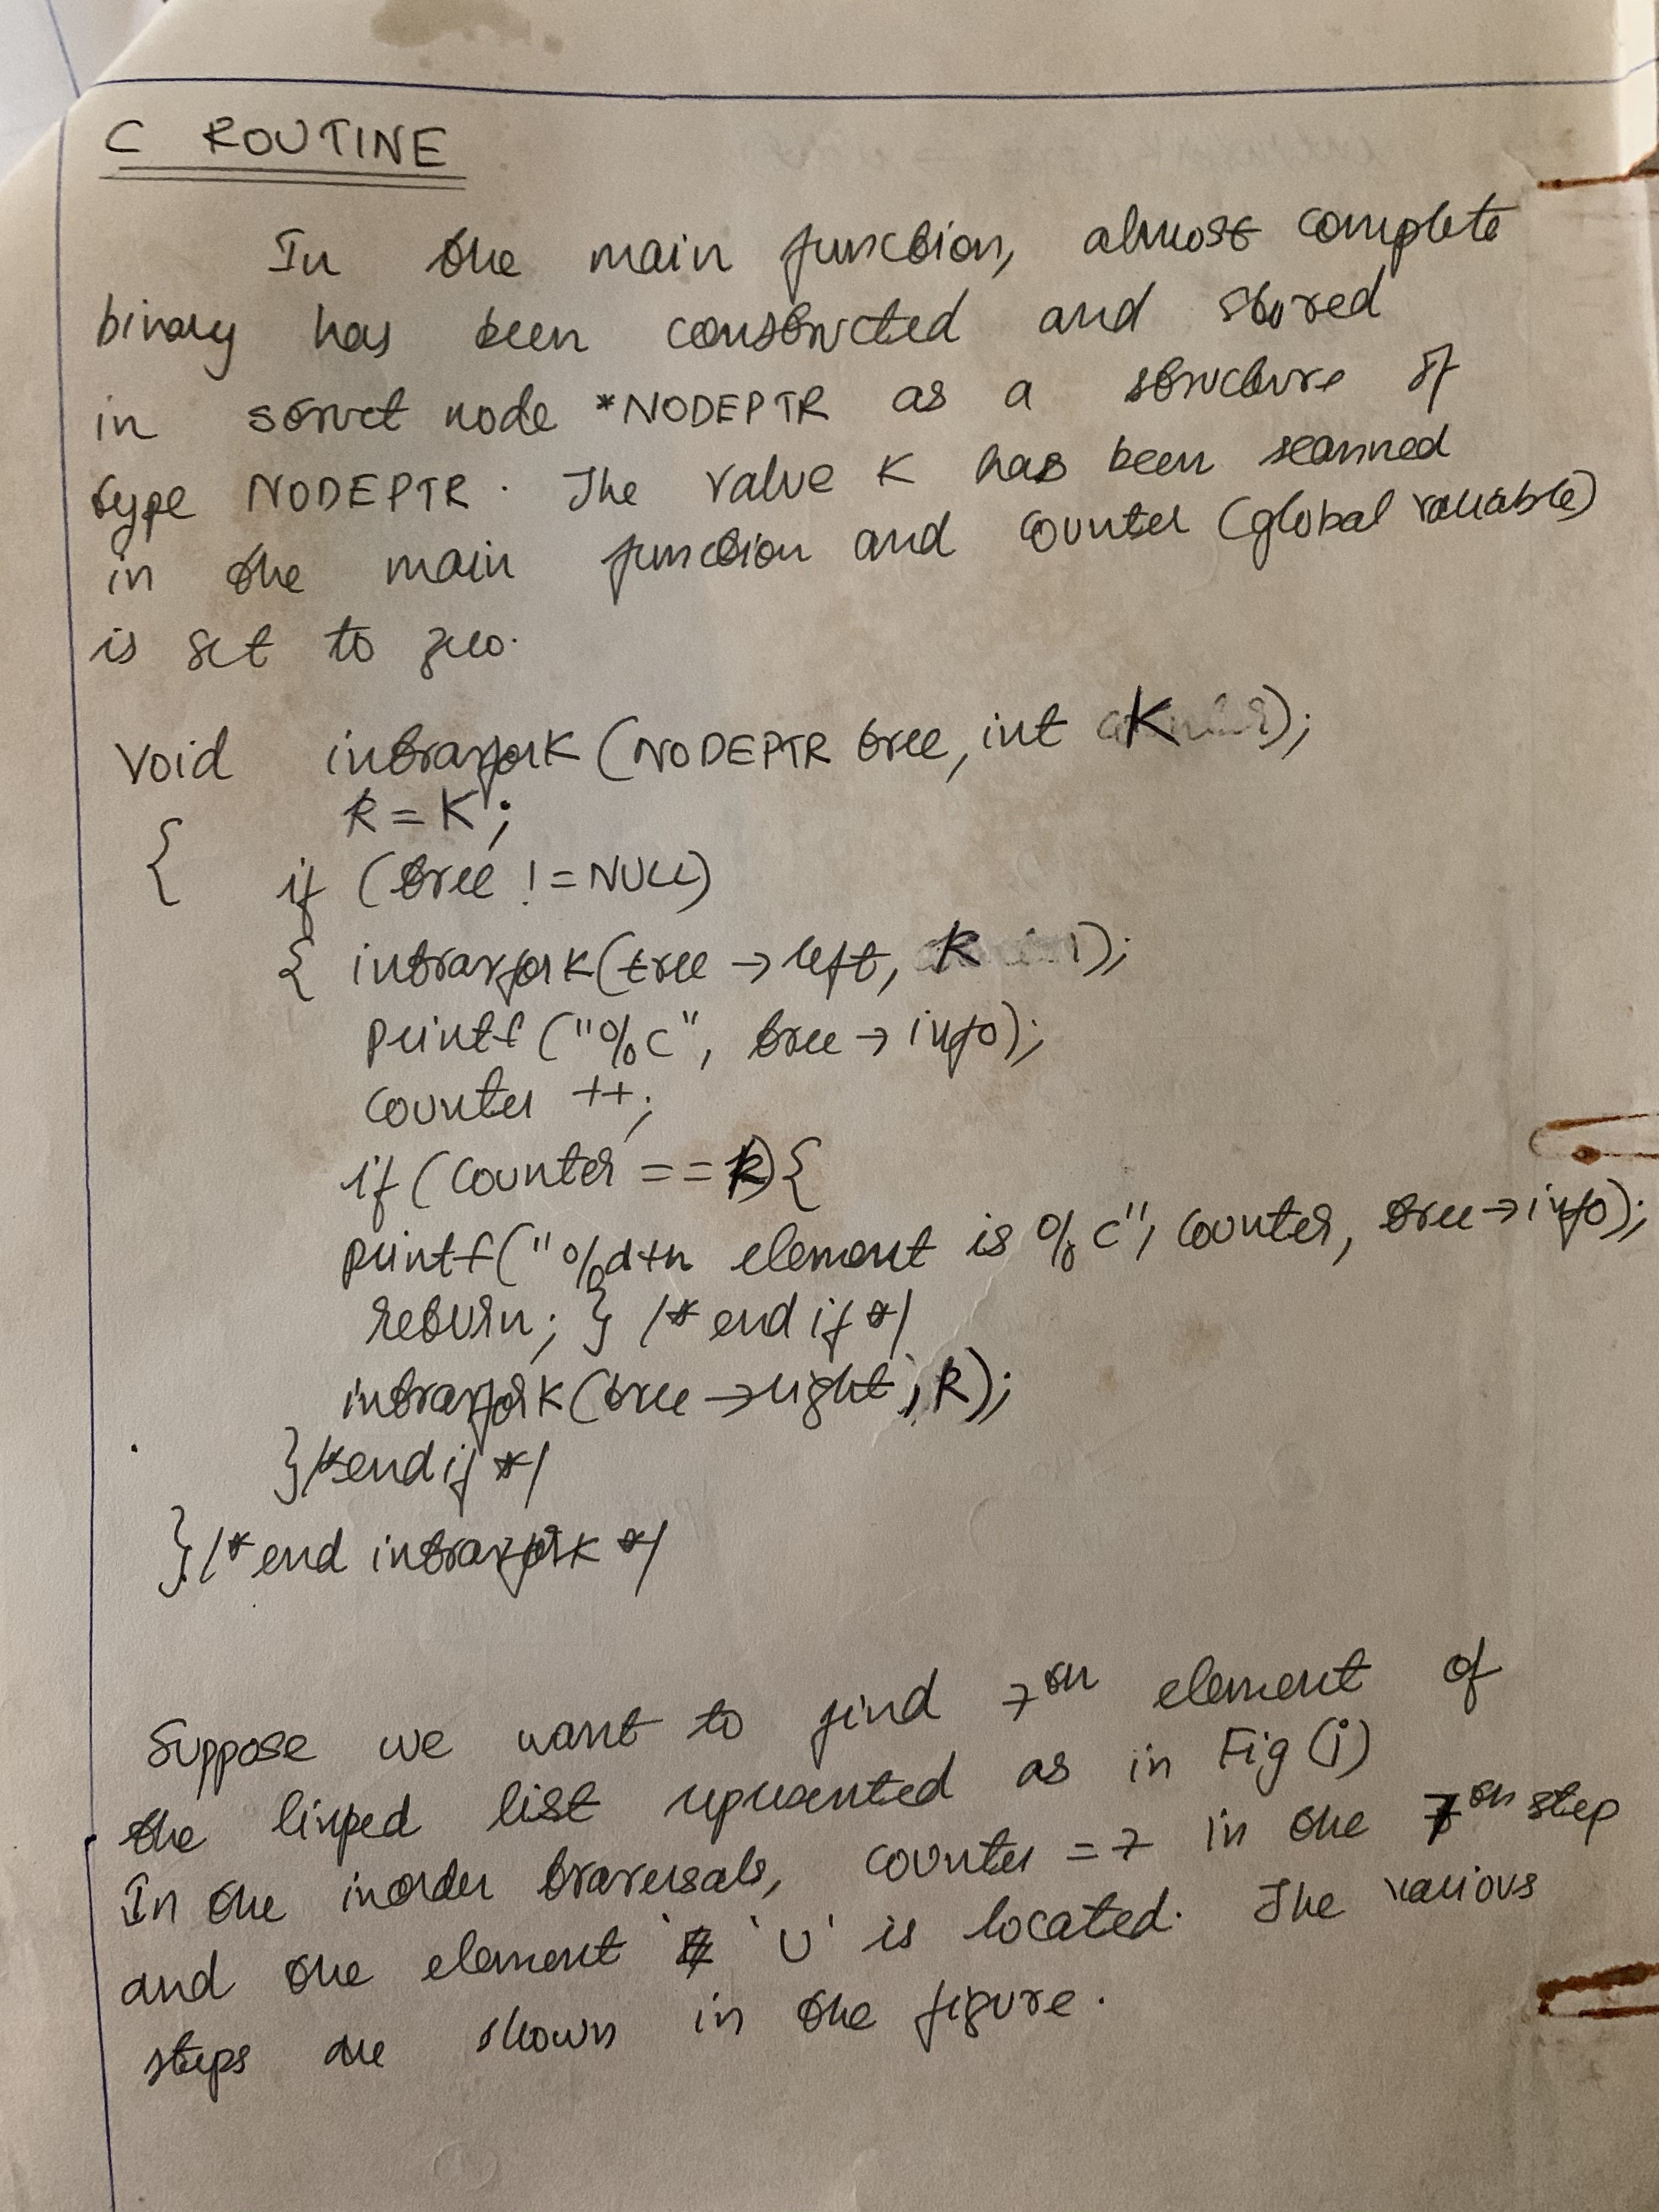 C ROUTINE
In the main function, almost complete
binary has been constructed and stored
in struct node *NODEPTR as a structure of
type NODEPTR. The value K has been scanned
in the main function and counter (global variable)
is set to zero.
void intravfork (NODEPTR tree, int K);
k = K;
{ if (tree != NULL)
{ intravfork(tree → left, k);
printf ("%c", tree → info);
counter ++;
if (counter == k) {
printf("%dth element is %c", counter, tree → info);
return; } /* end if */
intravfork (tree → right, k);
} /* end if */
} /* end intravfork */
Suppose we want to find 7th element of
the linked list represented as in Fig (i)
In the inorder traversals, counter = 7 in the 7th step
and the element 'U' is located. The various
steps are shown in the figure.